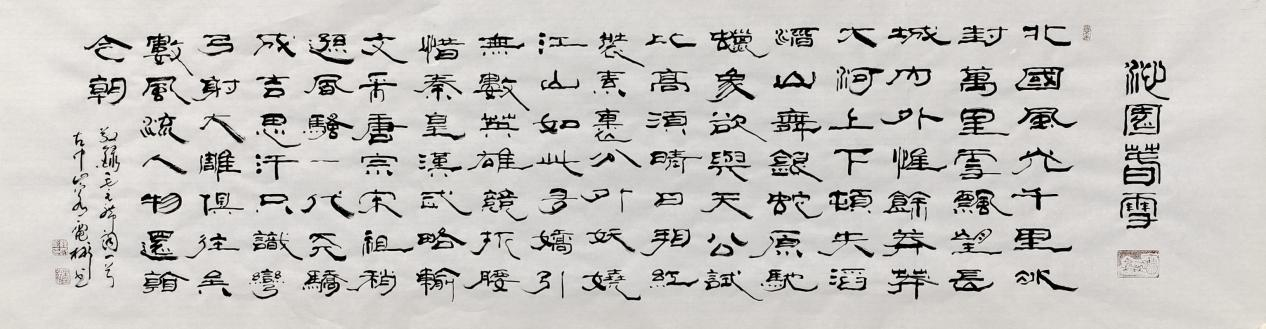 沁園春雪
北國風光千里冰
封萬里雪飄望長
城内外惟餘莽莽
大河上下頓失滔
滔山舞銀蛇原馳
蠟象欲與天公試
比高須晴日看紅
裝素裹分外妖嬈
江山如此多嬌引
無數英雄競折腰
惜秦皇漢武略輸
文采唐宗宋祖稍
遜風騷一代天驕
成吉思汗只識彎
弓射大雕俱往矣
數風流人物還看
今朝
敬錄毛主席詞一首